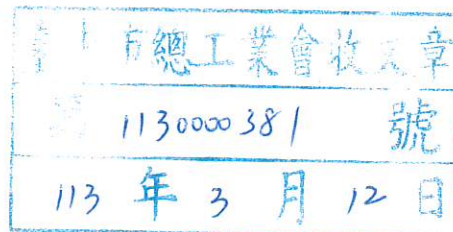 市總工業會收文章
1130000381 號
113 年 3 月 12 日